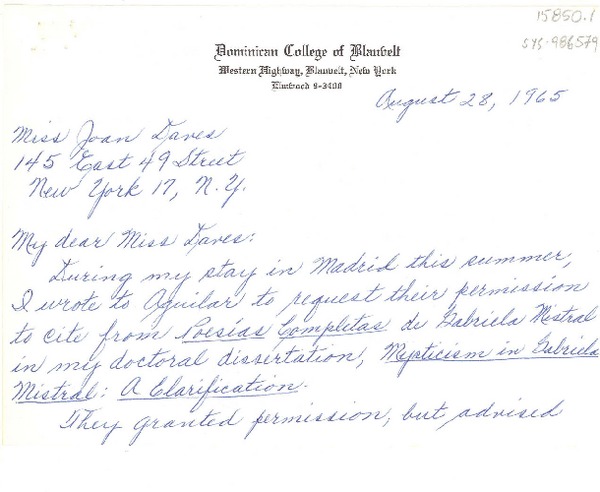 15850.1
sys-986579
Dominican College of Blauvelt
Western Highway, Blauvelt, New York
Elmwood 9-3400
August 28, 1965
Miss Joan Daves
145 East 49 Street
New York 17, N.Y.
My dear Miss Daves:
During my stay in Madrid this summer,
I wrote to Aguilar to request their permission
to cite from Poesías Completas de Gabriela Mistral
in my doctoral dissertation, Mysticism in Gabriela
Mistral: A Clarification.
They granted permission, but advised